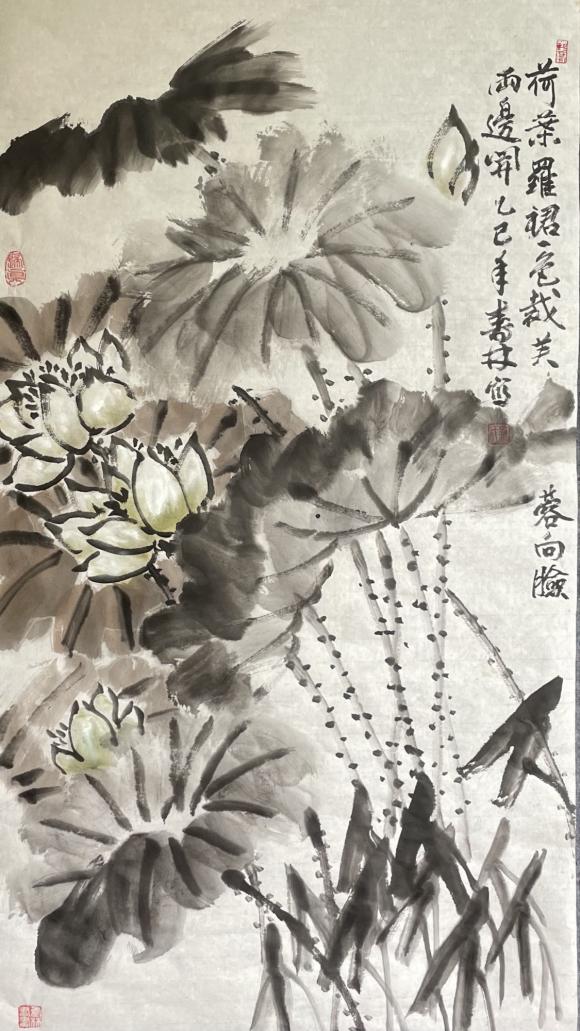 荷葉羅裙一色裁芙蓉向臉
兩邊開乙巳年壽林寫